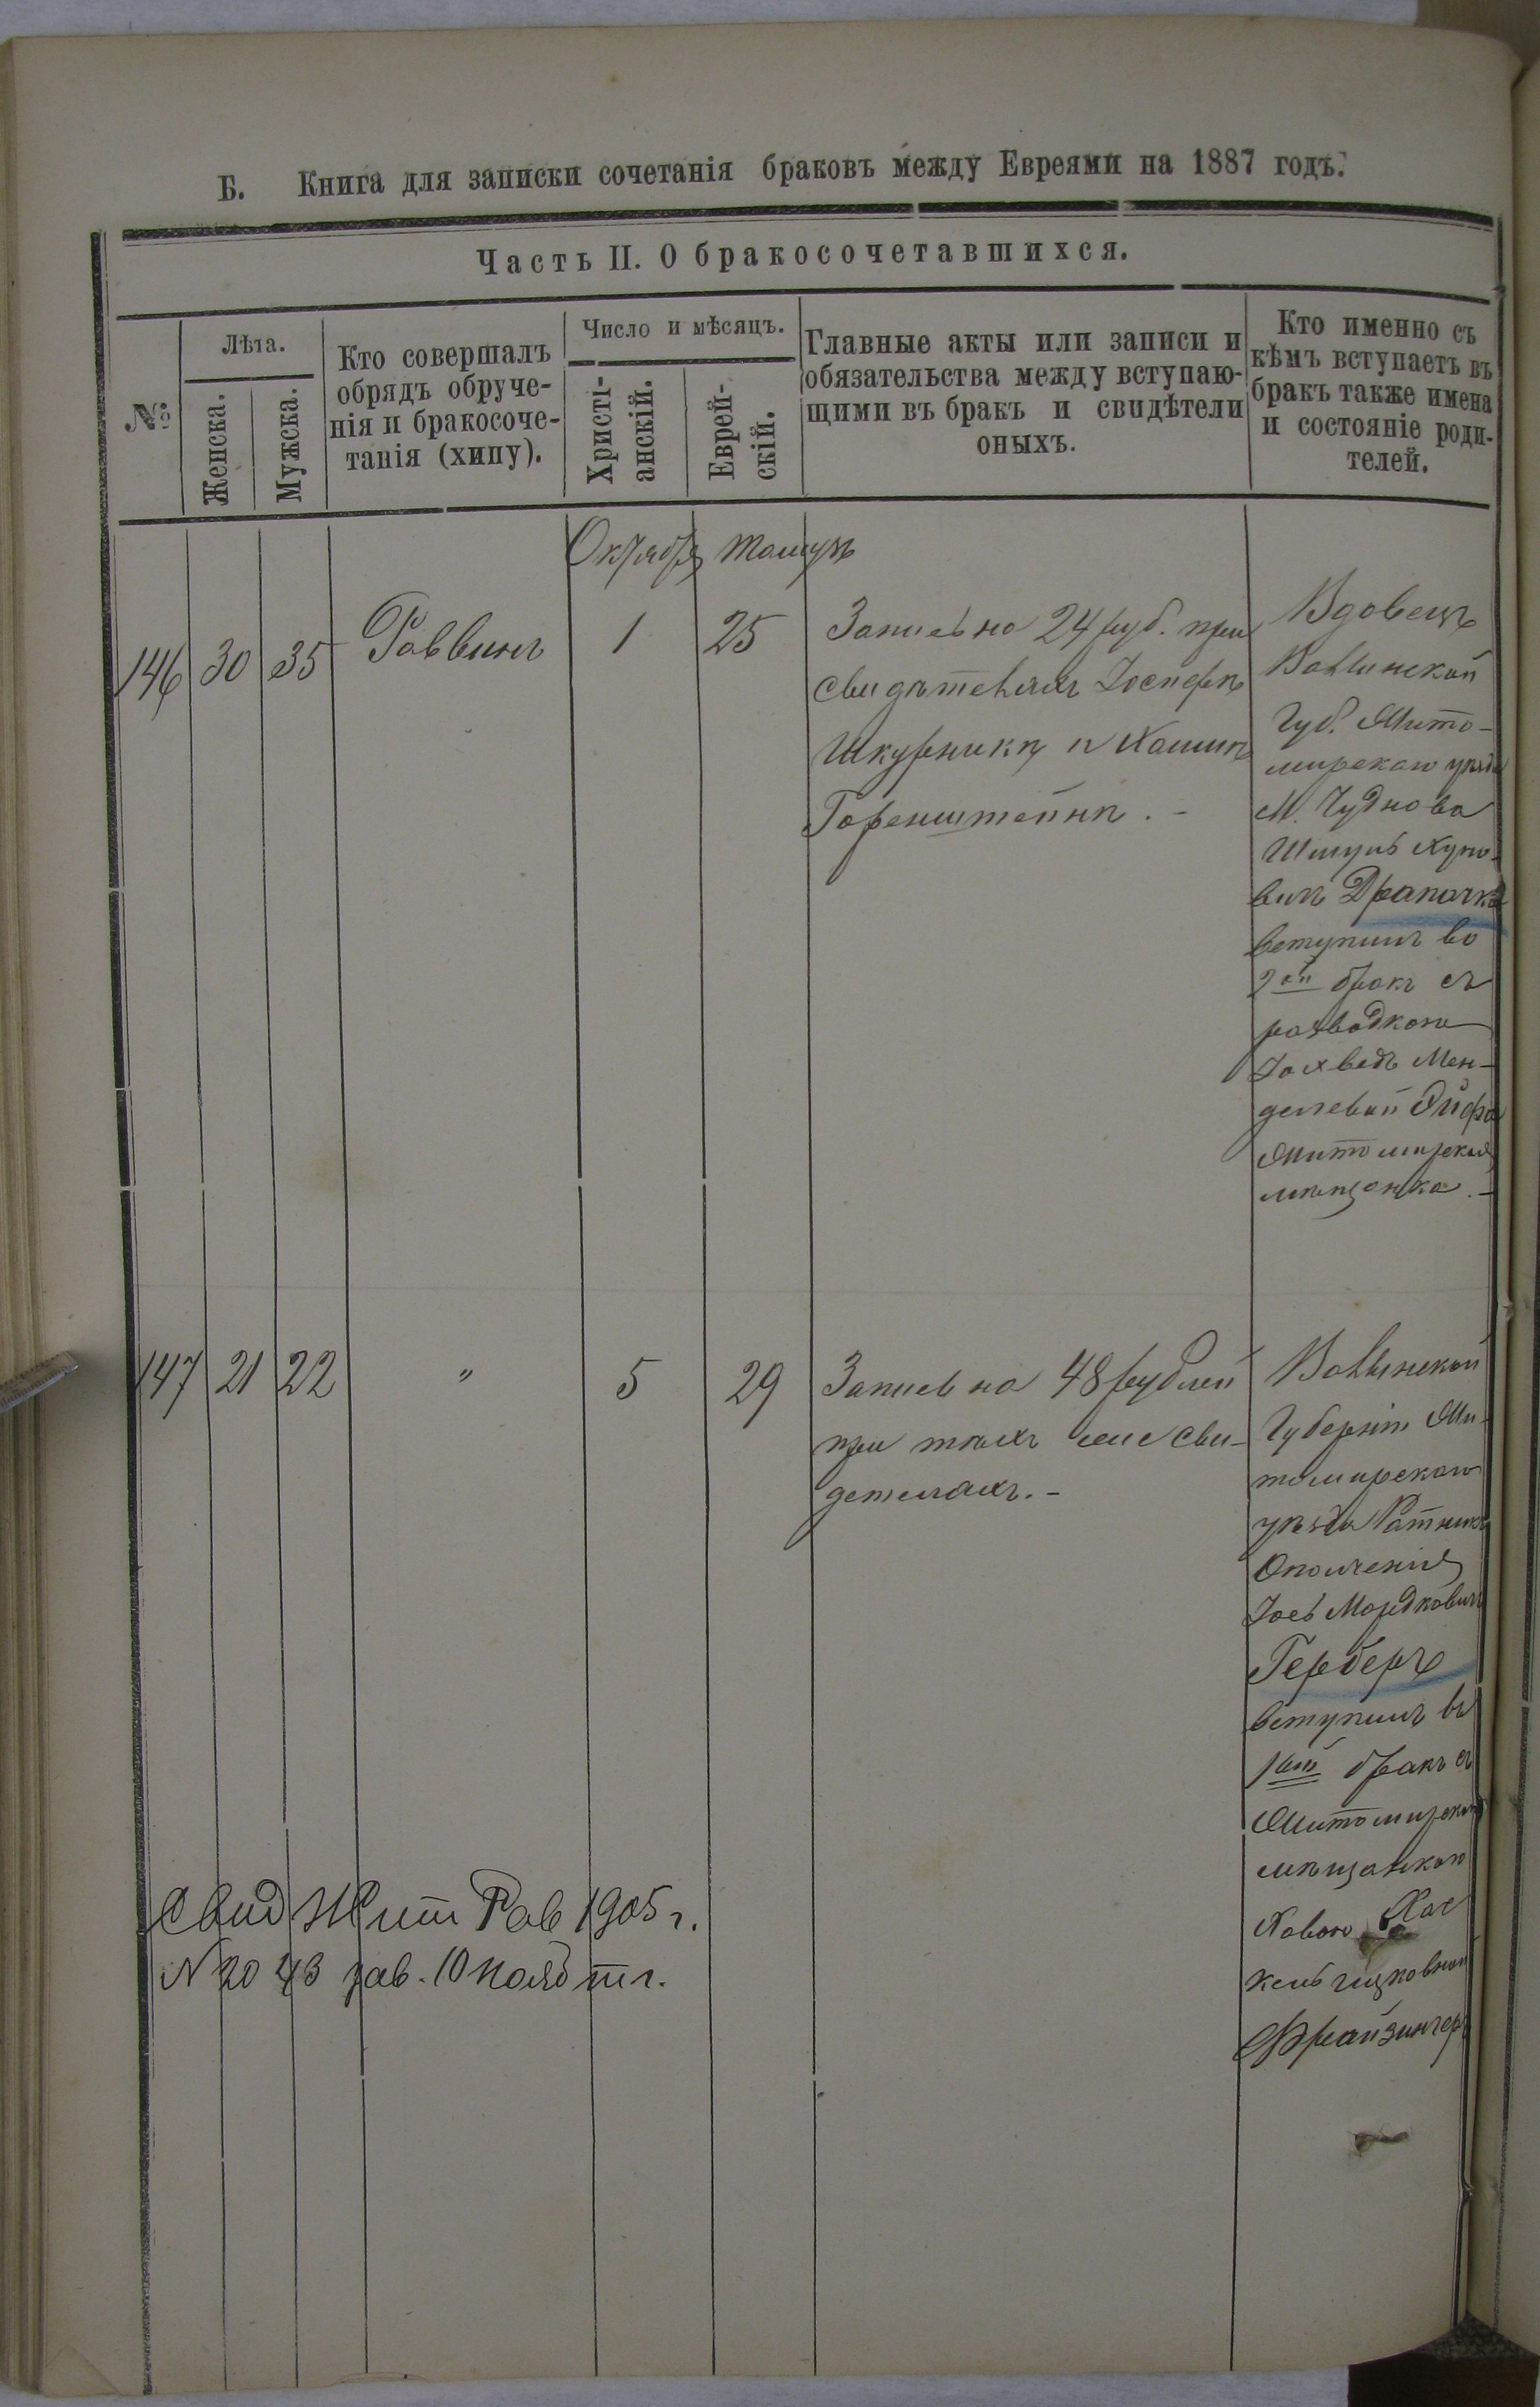 Б. Книга для записки сочетанія браковъ между Евреями на 1887 годъ.
Часть II. О бракосочетавшихся.
№
Лѣта.
Женска.
Мужска.
Кто совершалъ
обрядъ обруче-
нія и бракосоче-
танія (хипу).
Число и мѣсяцъ.
Христі-
анскій.
Еврей-
скій.
Главные акты или записи и
обязательства между вступаю-
щими въ бракъ и свидѣтели
оныхъ.
Кто именно съ
кѣмъ вступаетъ въ
бракъ также имена
и состояніе роди-
телей.
Октября
146 30 35 Раввинъ 1 25
Запись на 24 руб. при
свидѣтеляхъ Іосифѣ
Шкурникѣ и Хаимѣ
Горенштейнѣ. -
Вдовецъ
Волынской
Губ. Жито-
мирскаго уѣзда
М. Чуднова
Шмуль
Драпочка
вступилъ во
2ой бракъ съ
разводкою
Іохведъ Мен-
делевой
Житомирская
мѣщанка. -
147 21 22 " 5 29
Запись на 48 рублей
при тѣхъ же сви-
детеляхъ. -
Волынской
Губерніи Жи-
томирскаго
уѣзда Ратникъ
Ополченія
Іось Мордковичъ
Герберъ
вступилъ въ
1ый бракъ съ
Житомирской
мѣщанкой
Хавою
Фрайзингеръ
Свид Жит Рав 1905 г.
N 2043 рав. 10 нояб т г.